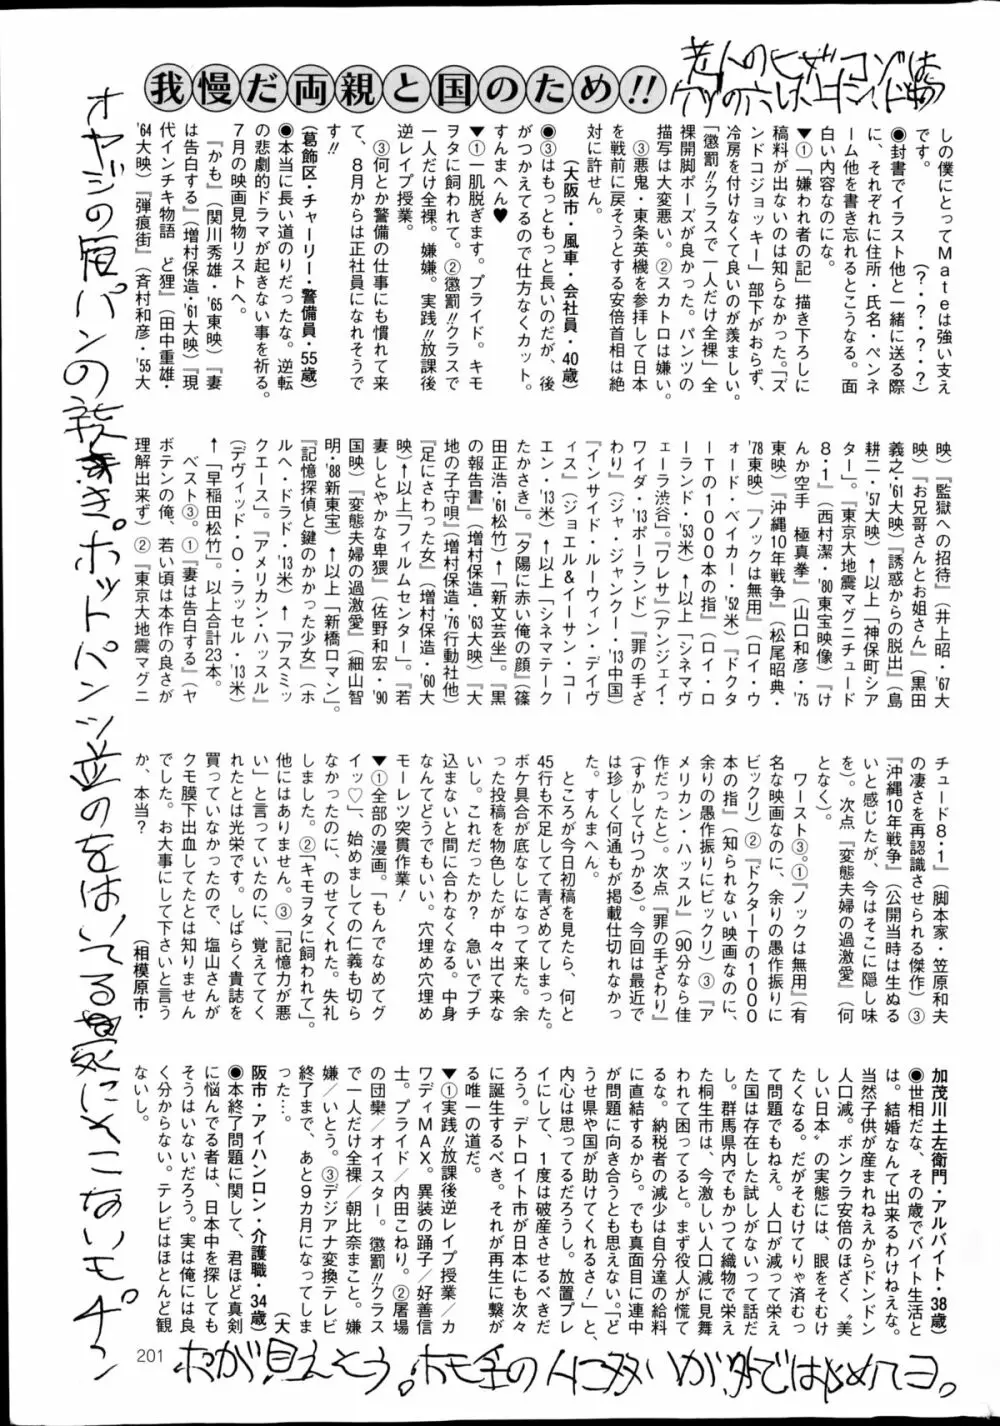 我慢だ両親と国のため!!
しの僕にとってMateは強い支え
です。　　　　　（？・？・？・？）
●封書でイラスト他と一緒に送る際
に、それぞれに住所・氏名・ペンネ
ーム他を書き忘れるとこうなる。面
白い内容なのにな。
▼①「嫌われ者の記」描き下ろしに
稿料が出ないのは知らなかった。「ズ
ンドコジョッキー」部下がおらず、
冷房を付けなくて良いのが羨ましい。
「懲罰!!クラスで一人だけ全裸」全
裸開脚ポーズが良かった。パンツの
描写は大変悪い。②スカトロは嫌い。
③悪鬼・東条英機を参拝して日本
を戦前に戻そうとする安倍首相は絶
対に許せん。
（大阪市・風車・会社員・40歳）
●③はもっともっと長いのだが、後
がつかえてるので仕方なくカット。
すんまへん♥
▼①一肌脱ぎます。プライド。キモ
ヲタに飼われて。②懲罰!!クラスで
一人だけ全裸。嫌嫌。実践!!放課後
逆レイプ授業。
③何とか警備の仕事にも慣れて来
て、8月からは正社員になれそうで
す!!
（葛飾区・チャーリー・警備員・55歳）
●本当に長い道のりだったな。逆転
の悲劇的ドラマが起きない事を祈る。
7月の映画見物リストへ。
『かも』（関川秀雄・'65東映）『妻
は告白する』（増村保造・'61大映）『現
代インチキ物語　ど狸』（田中重雄・
'64大映）『弾痕街』（斉村和彦・'55大
映）『監獄への招待』（井上昭・'67大
映）『お兄哥さんとお姐さん』（黒田
義之・'61大映）『誘惑からの脱出』（島
耕二・'57大映）↑以上「神保町シア
ター」。『東京大地震マグニチュード
8・1』（西村潔・'80東宝映像）『け
んか空手　極真拳』（山口和彦・'75
東映）『沖縄10年戦争』（松尾昭典・
'78東映）『ノックは無用』（ロイ・ウ
ォード・ベイカー・'52米）『ドクタ
ーTの1000本の指』（ロイ・ロ
ーランド・'53米）↑以上「シネマヴ
ェーラ渋谷」。『ワレサ』（アンジェイ・
ワイダ・'13ポーランド）『罪の手ざ
わり』（ジャ ジャンクー・'13中国）
『インサイド・ルーウィン・デイヴ
ィス』（ジョエル&イーサン・コー
エン・'13米）↑以上「シネマテーク
たかさき」。『夕陽に赤い俺の顔』（篠
田正浩・'61松竹）↑「新文芸坐」。『黒
の報告書』（増村保造・'63大映）『大
地の子守唄』（増村保造・'76行動社他）
『足にさわった女』（増村保造・'60大
映）↑以上「フィルムセンター」。『若
妻しとやかな卑猥』（佐野和宏・'90
国映）『変態夫婦の過激愛』（細山智
明・'88新東宝）↑以上「新橋ロマン」。
『記憶探偵と鍵のかかった少女』（ホ
ルヘ・ドラド・'13米）↑「アスミッ
クエース」。『アメリカン・ハッスル』
（デヴィッド・O・ラッセル・'13米）
↑「早稲田松竹」。以上合計23本。
ベスト③。①『妻は告白する』（ヤ
ボテンの俺、若い頃は本作の良さが
理解出来ず）②『東京大地震マグニ
チュード8・1』（脚本家・笠原和夫
の凄さを再認識させられる傑作）③
『沖縄10年戦争』（公開当時は生ぬる
いと感じたが、今はそこに隠し味
を）。次点『変態夫婦の過激愛』（何
となく）。
ワースト③。①『ノックは無用』（有
名な映画なのに、余りの愚作振りに
ビックリ）②『ドクターTの1000
本の指』（知られない映画なのに、
余りの愚作振りにビックリ）③『ア
メリカン・ハッスル』（90分なら佳
作だったと）。次点『罪の手ざわり』
（すかしてけつかる）。今回は最近で
は珍しく何通もが掲載仕切れなかっ
た。すんまへん。
ところが今日初稿を見たら、何と
45行も不足してて青ざめてしまった。
ボケ具合が底なしになって来た。余
った投稿を物色したが中々出て来な
いし。これだったか？　急いでブチ
込まないと間に合わなくなる。中身
なんてどうでもいい。穴埋め穴埋め
モーレツ突貫作業！
▼①全部の漫画。「もんでなめてグ
イッ♡」、始めましての仁義も切ら
なかったのに、のせてくれた。失礼
しました。②「キモヲタに飼われて」。
他にはありません。③「記憶力が悪
い」と言っていたのに、覚えててく
れたとは光栄です。しばらく貴誌を
買っていなかったので、塩山さんが
クモ膜下出血してたとは知りません
でした。お大事にして下さいと言う
か、本当？
（相模原市・
加茂川土左衛門・アルバイト・38歳）
●世相だな、その歳でバイト生活と
は。結婚なんて出来るわけねえな。
当然子供が産まれねえからドンドン
人口減。ボンクラ安倍のほざく〝美
しい日本〟の実態には、眼をそむけ
たくなる。だがそむけてりゃ済むっ
て問題でもねえ。人口が減って栄え
た国は存在した試しがないって話だ
し。群馬県内でもかつて織物で栄え
た桐生市は、今激しい人口減に見舞
われて困ってると。まず役人が慌て
るな。納税者の減少は自分達の給料
に直結するから。でも真面目に連中
が問題に向き合うとも思えない。「ど
うせ県や国が助けてくれるさ！」と、
内心は思ってるだろうし。放置プレ
イにして、1度は破産させるべきだ
ろう。デトロイト市が日本にも次々
に誕生するべき。それが再生に繋が
る唯一の道だ。
▼①実践!!放課後逆レイプ授業／カ
ワディMAX。異装の踊子／好善信
士。プライド／内田こねり。②屠場
の団欒／オイスター。懲罰!!クラス
で一人だけ全裸／朝比奈まこと。嫌
嫌／いとう。③デジアナ変換テレビ
終了まで、あと9カ月になってしま
った…。
（大
阪市・アイハンロン・介護職・34歳）
●本終了問題に関して、君ほど真剣
に悩んでる者は、日本中を探しても
そうはいないだろう。実は俺には良
く分からない。テレビはほとんど観
ないし。
201